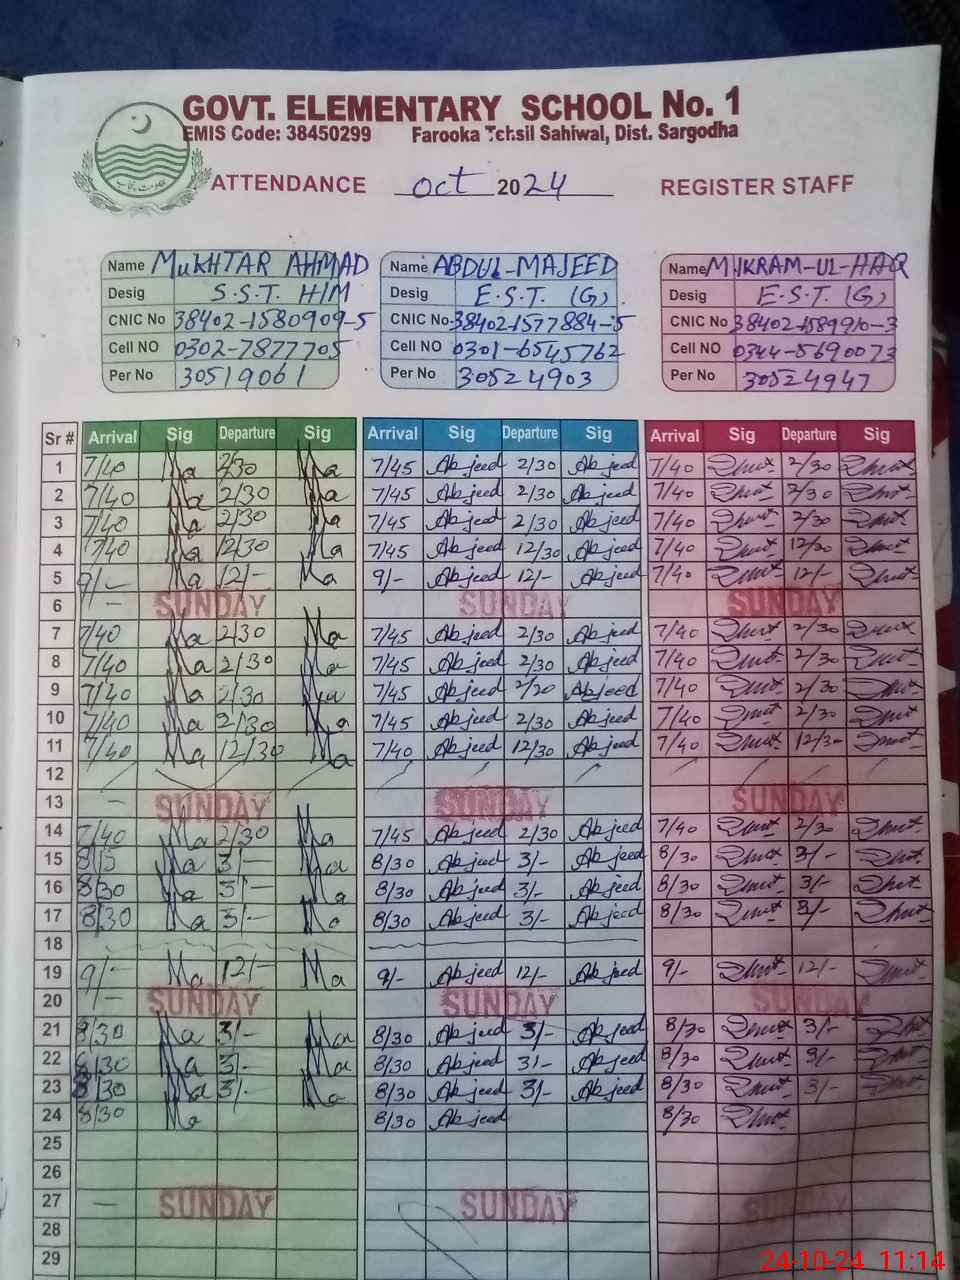 GOVT. ELEMENTARY SCHOOL No. 1
EMIS Code: 38450299 Farooka Tehsil Sahiwal, Dist. Sargodha
ATTENDANCE oct 2024 REGISTER STAFF
Name MUKHTAR AHMAD Name ABDUL-MAJEED Name M IKRAM-UL-HAQ
Desig S.S.T. H/M Desig E.S.T. (G) Desig E.S.T. (G)
CNIC No 38402-1580909-5 CNIC No 38402-1577884-5 CNIC No 38402-1589910-3
Cell NO 0302-7877705 Cell NO 0301-6545762 Cell NO 0344-5690073
Per No 30519061 Per No 30524903 Per No 30524947
Sr # Arrival Sig Departure Sig Arrival Sig Departure Sig Arrival Sig Departure Sig
1 7/40 Ma 2/30 Ma 7/45 Abjeed 2/30 Abjeed 7/40 2/30
2 7/40 Ma 2/30 Ma 7/45 Abjeed 2/30 Abjeed 7/40 2/30
3 7/40 Ma 2/30 Ma 7/45 Abjeed 2/30 Abjeed 7/40 2/30
4 7/40 Ma 12/30 Ma 7/45 Abjeed 12/30 Abjeed 7/40 12/30
5 9/- Ma 12/- Ma 9/- Abjeed 12/- Abjeed 7/40 12/-
6 - SUNDAY SUNDAY SUNDAY
7 7/40 Ma 2/30 Ma 7/45 Abjeed 2/30 Abjeed 7/40 2/30
8 7/40 Ma 2/30 Ma 7/45 Abjeed 2/30 Abjeed 7/40 2/30
9 7/40 Ma 2/30 Ma 7/45 Abjeed 2/20 Abjeed 7/40 2/30
10 7/40 Ma 2/30 Ma 7/45 Abjeed 2/30 Abjeed 7/40 2/30
11 7/40 Ma 12/30 Ma 7/40 Abjeed 12/30 Abjeed 7/40 12/3-
12
13 - SUNDAY SUNDAY SUNDAY
14 7/40 Ma 2/30 Ma 7/45 Abjeed 2/30 Abjeed 7/40 2/30
15 Ma 3/- Ma 8/30 Abjeed 3/- Abjeed 8/30 3/-
16 8/30 Ma 3/- Ma 8/30 Abjeed 3/- Abjeed 8/30 3/-
17 8/30 Ma 3/- Ma 8/30 Abjeed 3/- Abjeed 8/30 3/-
18
19 9/- Ma 12/- Ma 9/- Abjeed 12/- Abjeed 9/- 12/-
20 - SUNDAY SUNDAY SUNDAY
21 8/30 Ma 3/- Ma 8/30 Abjeed 3/- Abjeed 8/30 3/-
22 8/30 Ma 3/- Ma 8/30 Abjeed 3/- Abjeed 8/30 3/-
23 8/30 Ma 3/- Ma 8/30 Abjeed 3/- Abjeed 8/30 3/-
24 8/30 Ma 8/30 Abjeed 8/30
25
26
27 - SUNDAY SUNDAY SUNDAY
28
29
24-10-24 11:14